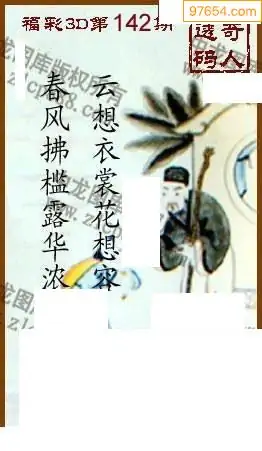 97654.com
福彩3D第142期
奇人
透码
云想衣裳花想容
春风拂槛露华浓